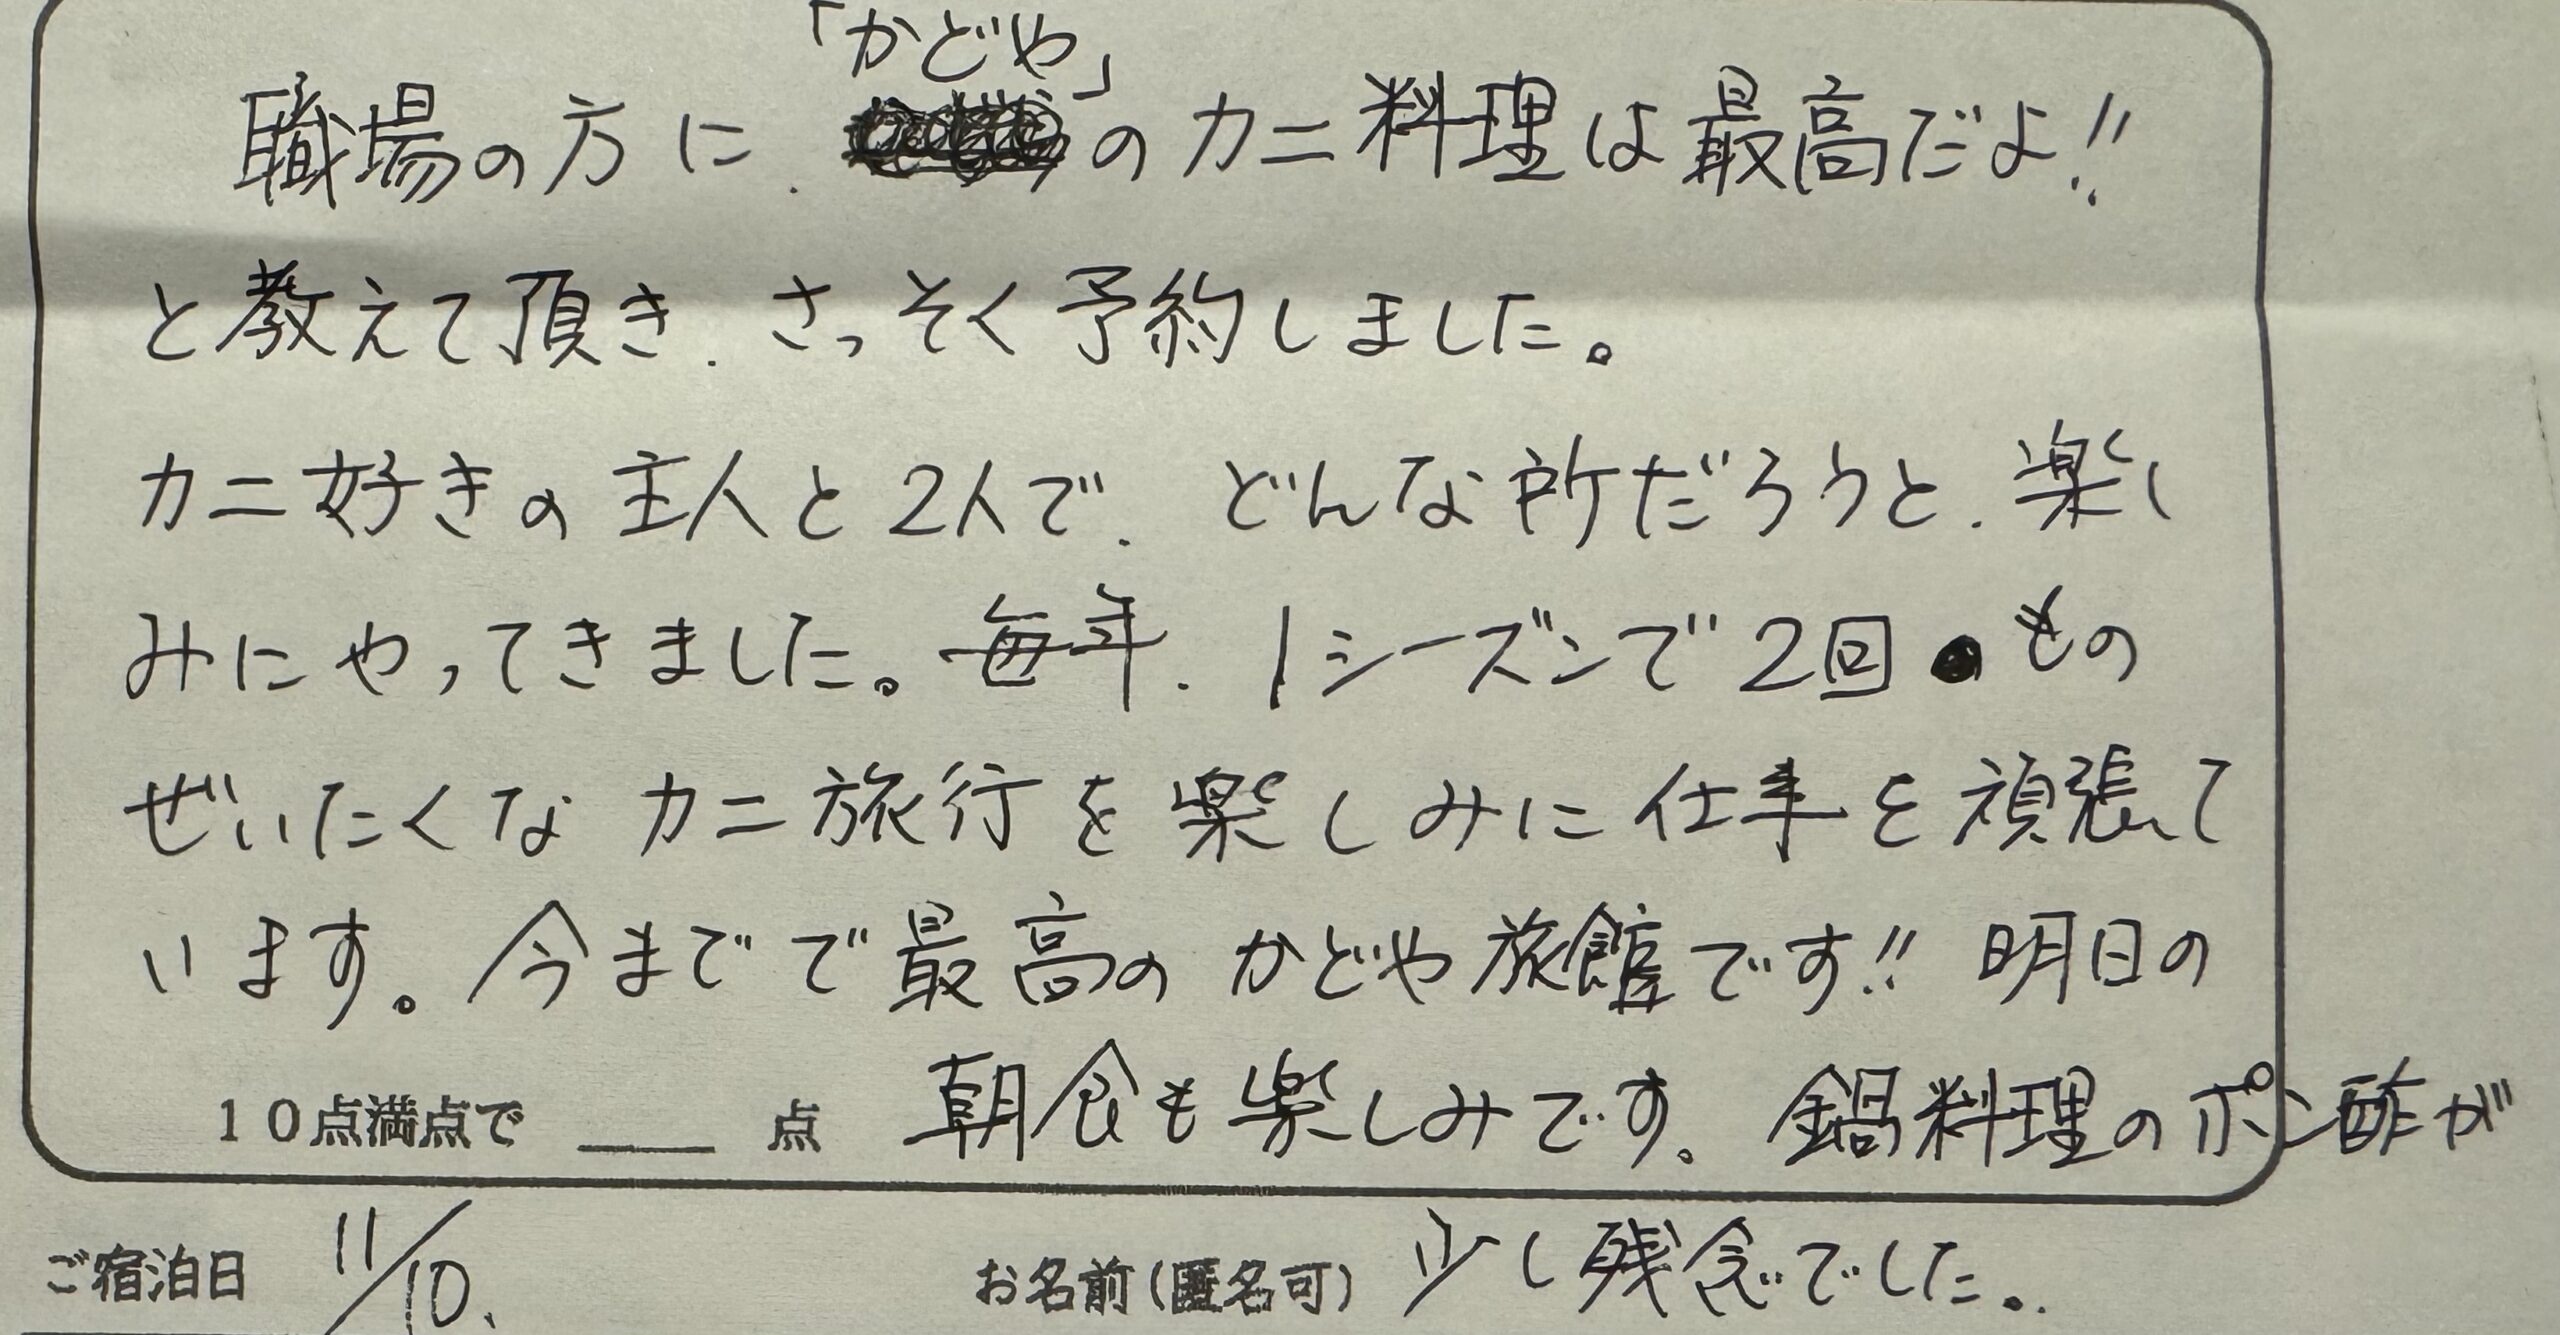 「かどや」
職場の方に、のカニ料理は最高だよ!!
と教えて頂き、さっそく予約しました。
カニ好きの主人と2人で、どんな所だろうと、楽し
みにやってきました。毎年、1シーズンで2回もの
ぜいたくなカニ旅行を楽しみに仕事を頑張って
います。今までで最高のかどや旅館です!! 明日の
10点満点で ___ 点 朝食も楽しみです。鍋料理のポン酢が
ご宿泊日 11/10、 お名前(匿名可) 少し残念でした。